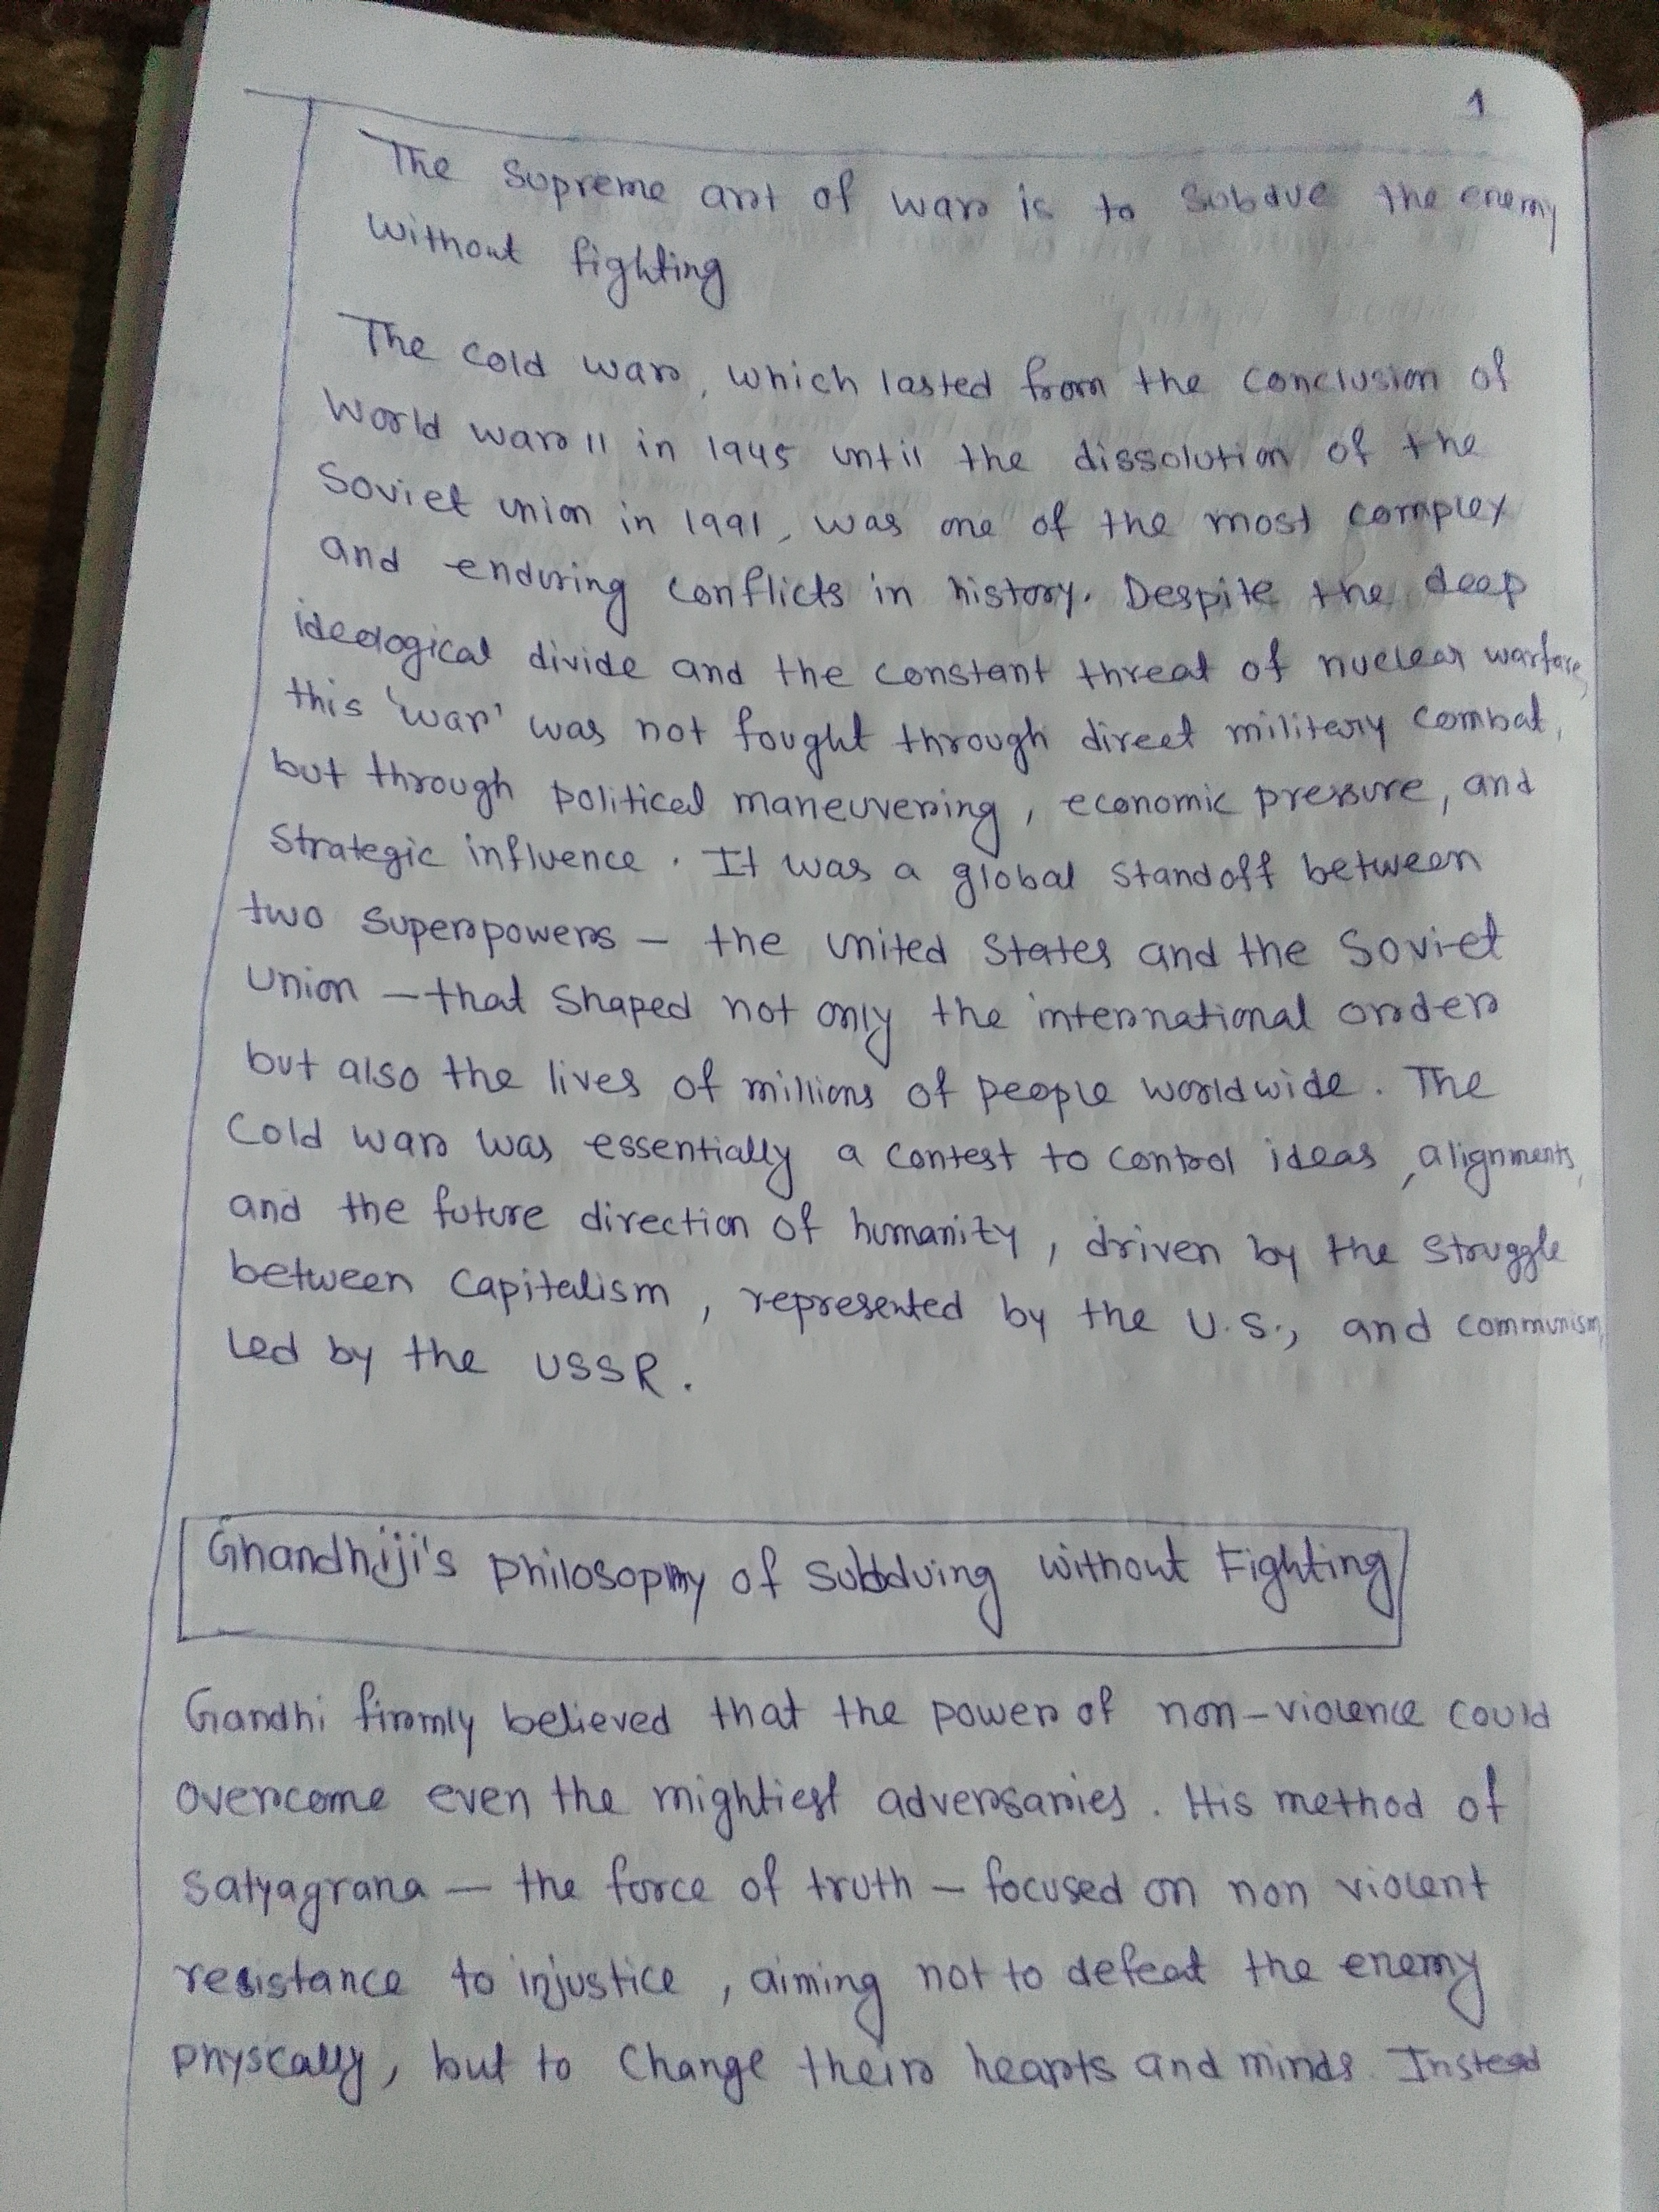 1
The Supreme art of war is to Subdue the enemy
without fighting
The cold war, which lasted from the conclusion of
World war II in 1945 until the dissolution of the
Soviet union in 1991, was one of the most complex
and enduring conflicts in history. Despite the deep
ideological divide and the constant threat of nuclear warfare,
this 'war' was not fought through direct military combat,
but through political maneuvering, economic pressure, and
Strategic influence. It was a global standoff between
two superpowers — the united States and the Soviet
Union — that Shaped not only the international order
but also the lives of millions of people worldwide. The
Cold war was essentially a contest to control ideas, alignments,
and the future direction of humanity, driven by the struggle
between Capitalism, represented by the U.S., and communism,
Led by the USSR.
Ghandhiji's Philosophy of Subduing without Fighting
Gandhi firmly believed that the power of non-violence could
overcome even the mightiest adversaries. His method of
Satyagrana — the force of truth — focused on non violent
resistance to injustice, aiming not to defeat the enemy
physcally, but to Change their hearts and minds. Instead